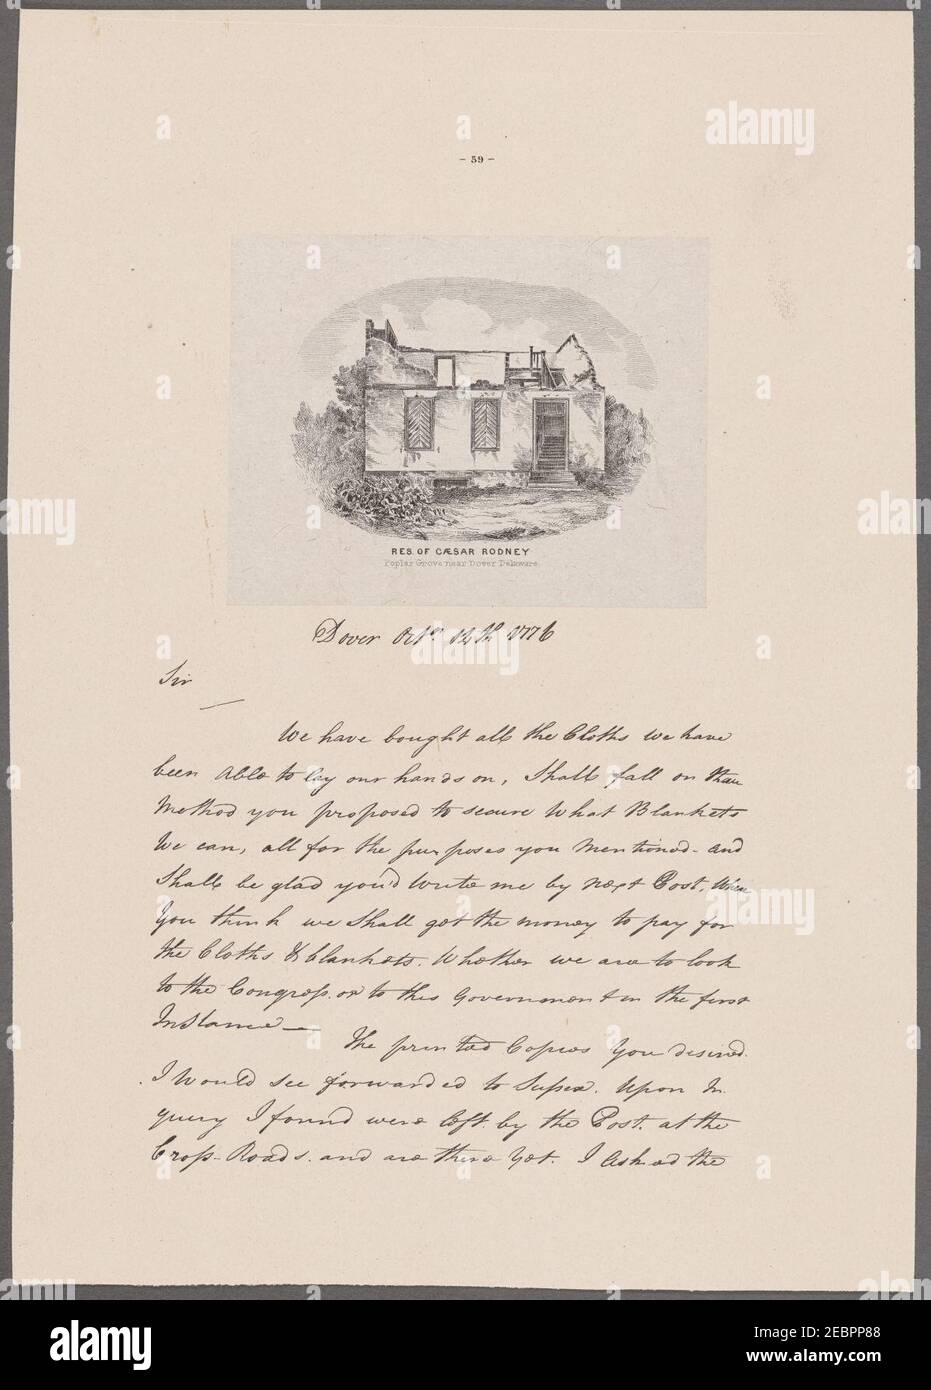 - 59 -
RES. OF CÆSAR RODNEY
Poplar Grove near Dover Delaware.
Dover Octr. 14th 1776
Sir
We have bought all the Cloths we have
been Able to lay our hands on, Shall fall on the
Method you proposed to secure What Blankets
We can, all for the purposes you Mentioned - and
Shall be glad you'd Write me by next Post, When
You think we Shall get the money to pay for
the Cloths & blankets. Whether we are to look
to the Congress. or to this Government in the first
Instance —
The printed Copies You desired.
I Would see forwarded to Sussex. Upon In
query I found were left. by the Post. at the
Cross-Roads. and are there Yet. I Asked the
alamy
Image ID: 2EBPP88
www.alamy.com